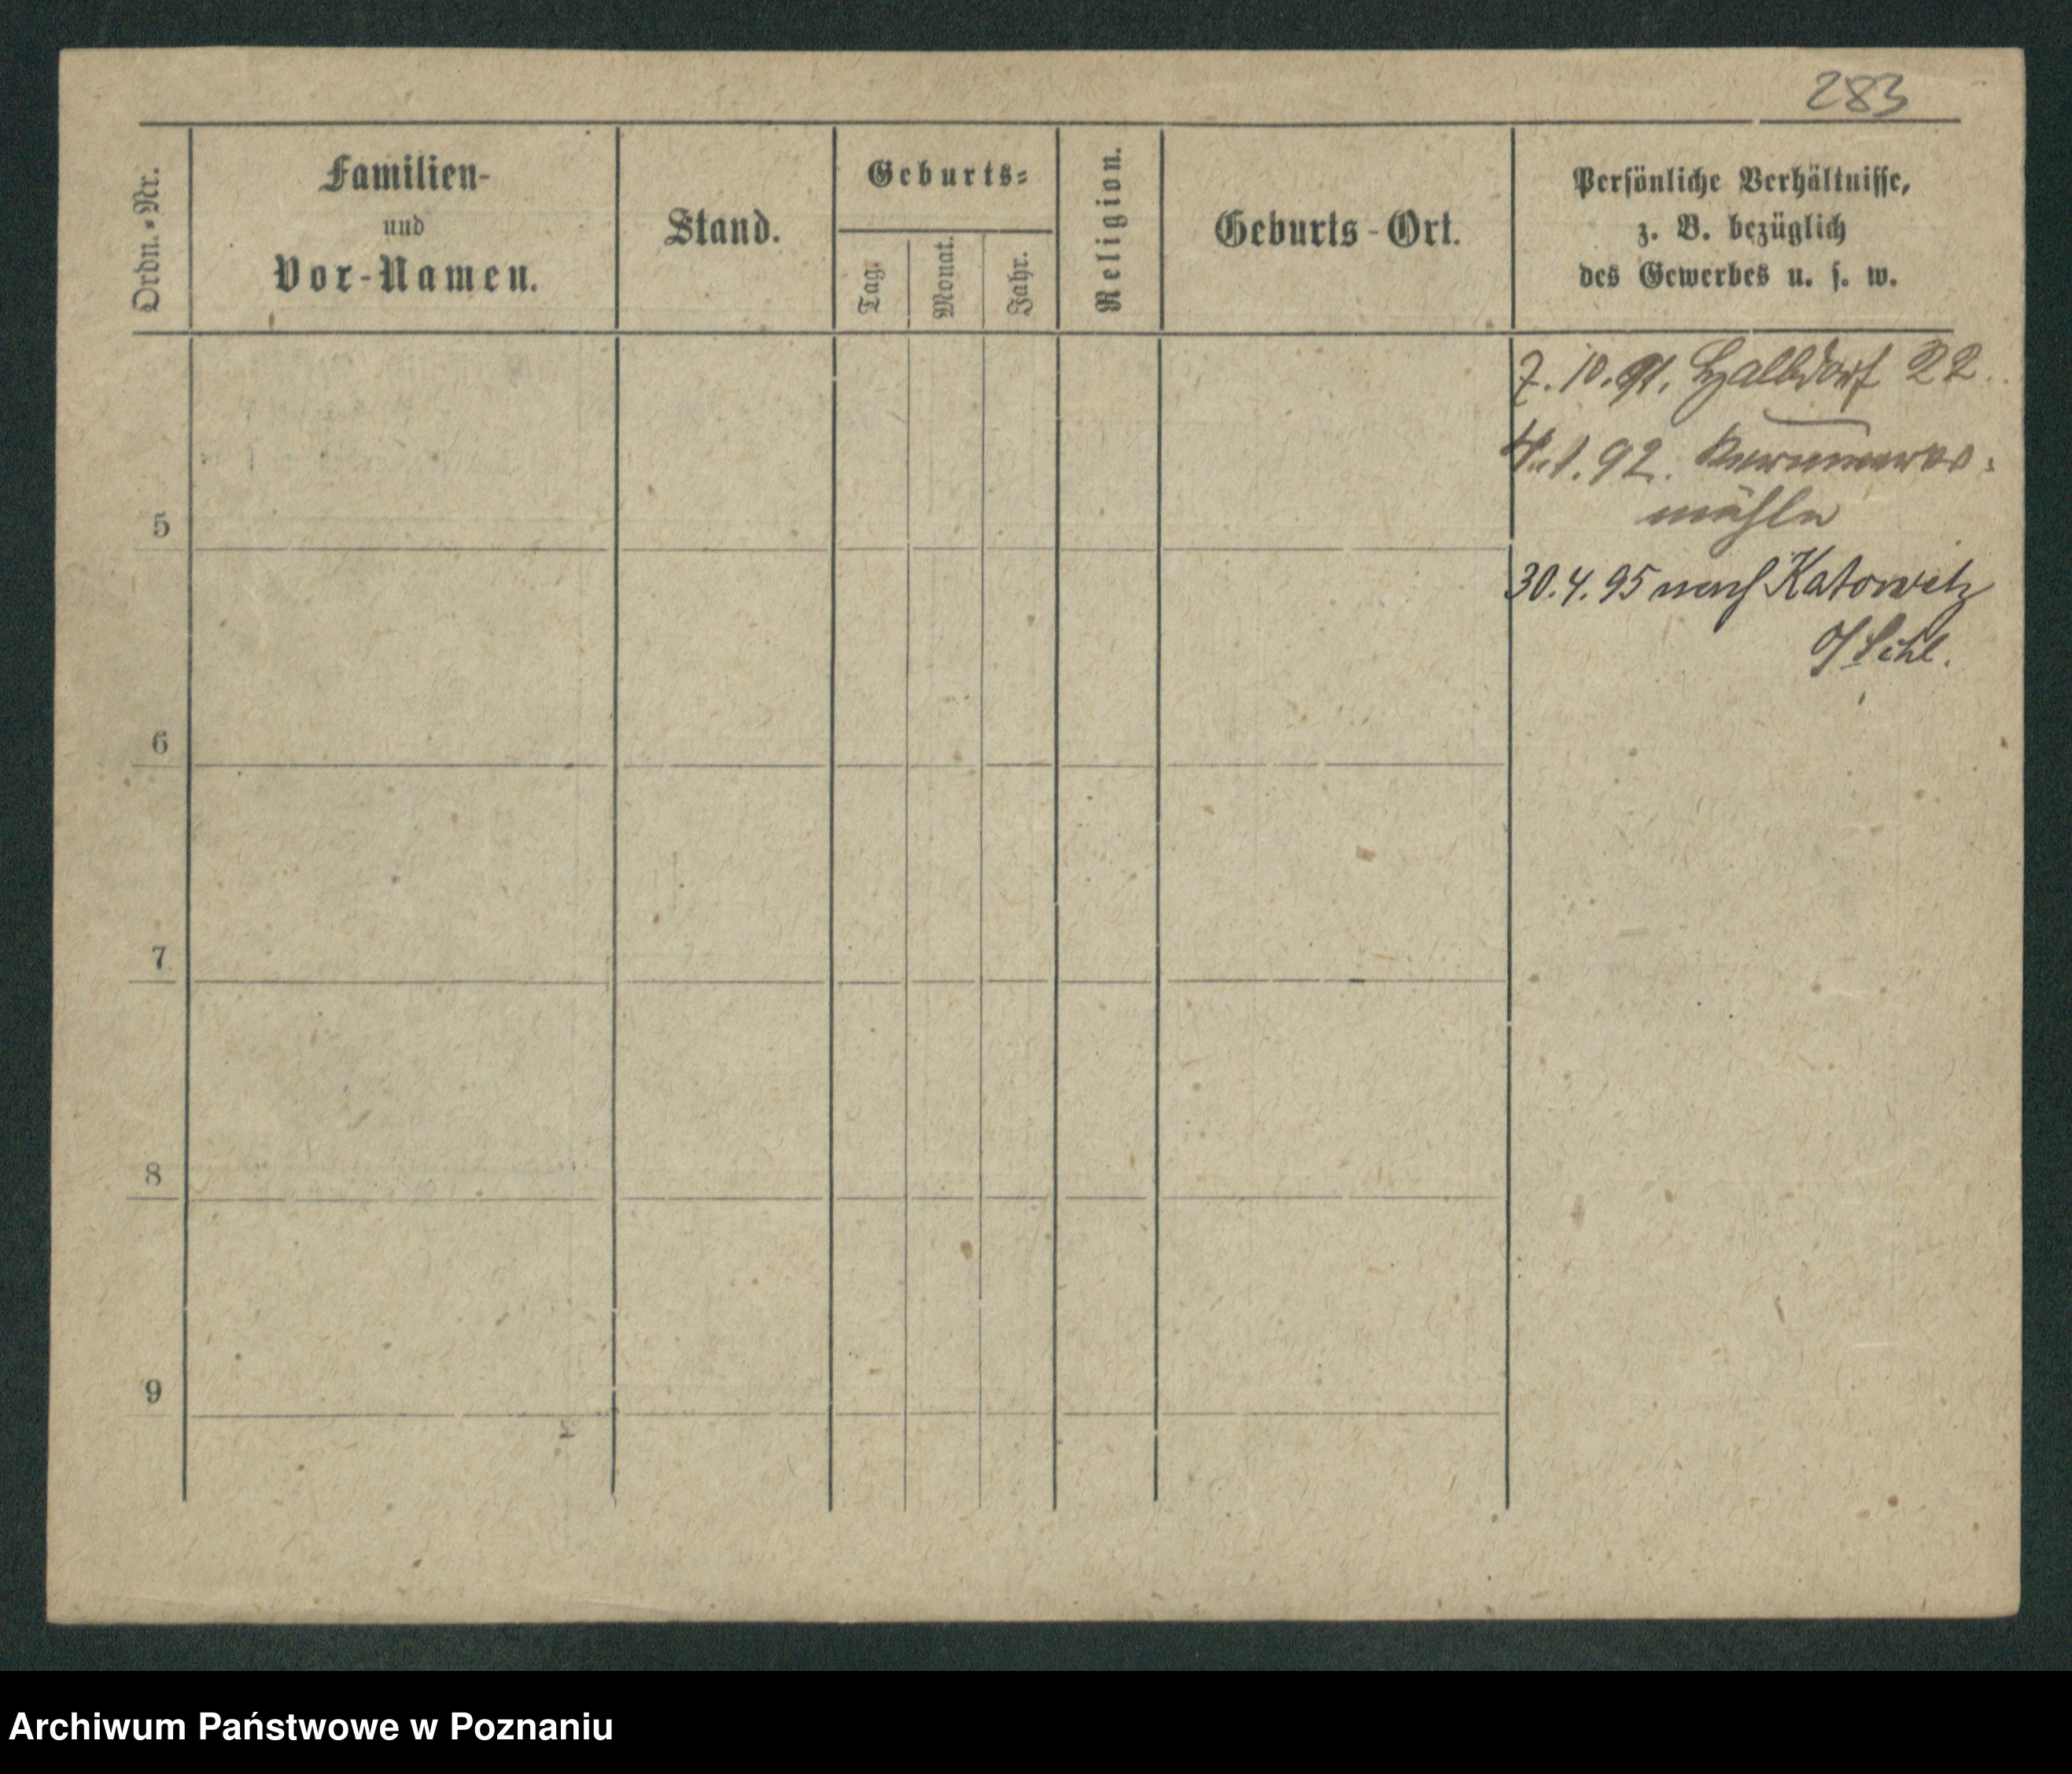 283
Ordn.-Nr.
Familien-
und
Vor-Namen.
Stand.
Geburts-
Tag.
Monat.
Jahr.
Religion.
Geburts-Ort.
Persönliche Verhältnisse,
z. B. bezüglich
des Gewerbes u. s. w.
7. 10. 91. Halbdorf 22.
4.1.92.
mühle
30.4.95 nach Katowitz
O/Schl.
5
6
7
8
9
Archiwum Państwowe w Poznaniu